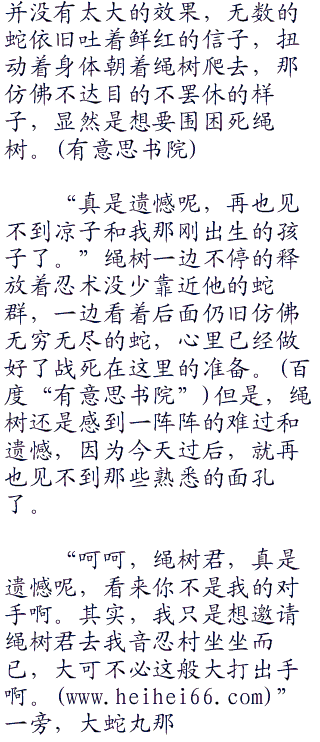 并没有太大的效果，无数的
蛇依旧吐着鲜红的信子，扭
动着身体朝着绳树爬去，那
仿佛不达目的不罢休的样
子，显然是想要围困死绳
树。(有意思书院)
“真是遗憾呢，再也见
不到凉子和我那刚出生的孩
子了。”绳树一边不停的释
放着忍术没少靠近他的蛇
群，一边看着后面仍旧仿佛
无穷无尽的蛇，心里已经做
好了战死在这里的准备。(百
度“有意思书院”)但是，绳
树还是感到一阵阵的难过和
遗憾，因为今天过后，就再
也见不到那些熟悉的面孔
了。
“呵呵，绳树君，真是
遗憾呢，看来你不是我的对
手啊。其实，我只是想邀请
绳树君去我音忍村坐坐而
已，大可不必这般大打出手
啊。(www.heihei66.com)”
一旁，大蛇丸那